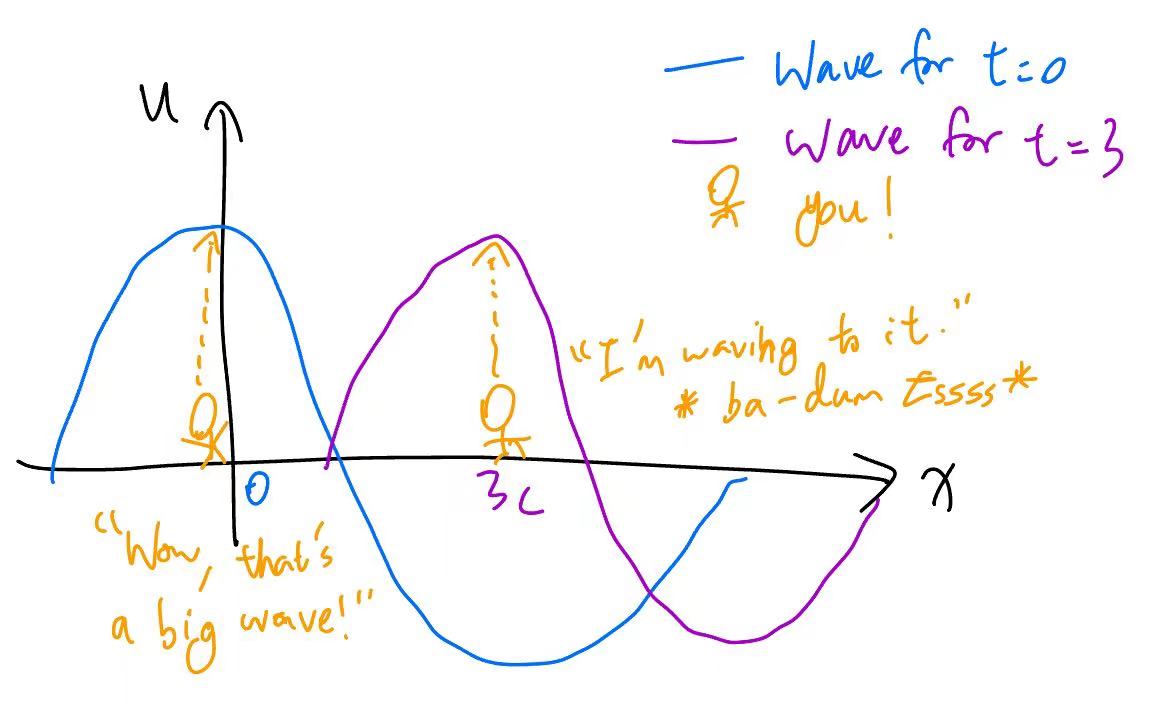 u
wave for t=0
wave for t=3
you!
"I'm waving to it."
* ba-dum tssss *
0
3c
x
"Wow, that's
a big wave!"